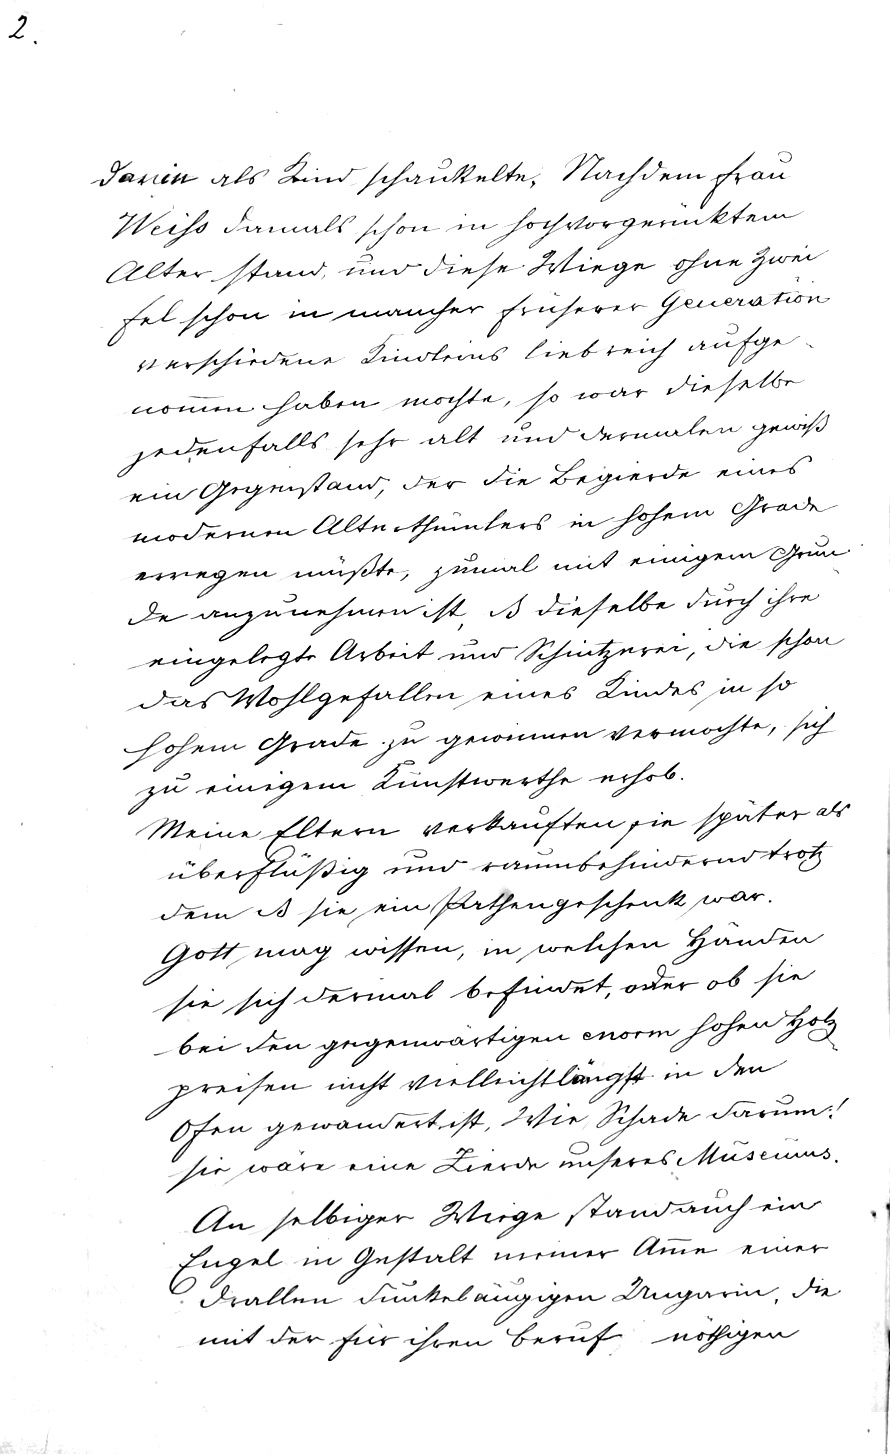 2.
darin als Kind schaukelte. Nachdem Frau
Weiss damals schon in hochvorgerücktem
Alter stand, und diese Wiege ohne Zwei
fel schon in mancher früherer Generation
verschiedene Kindleins liebreich aufge-
nom̄en haben mochte, so war dieselbe
jedenfalls sehr alt und dermalen gewiß
ein Gegenstand, der die Begierde eines
modernen Alterthümlers in hohem Grade
erregen müßte, zumal mit einigem Grun
de anzunehmen ist, dieselbe durch ihre
eingelegte Arbeit und Schnitzerei, die schon
das Wohlgefallen eines Kindes in so
hohem Grade zu gewinnen vermochte, sich
zu einigem Kunstwerthe erhob.
Meine Eltern verkauften sie später als
überflüßig und raumbehindernd trotz
dem sie ein Pathengeschenk war.
Gott mag wissen, in welchen Händen
sie sich dermal befindet, oder ob sie
bei den gegenwärtigen enorm hohen Holz
preisen nicht vielleicht längst in den
Ofen gewandert ist. Wie Schade darum!
sie wäre eine Zierde unseres Museums.
An selbiger Wiege stand auch ein
Engel in Gestalt meiner Am̄e einer
drallen dunkeläugigen Ungarin, die
mit der für ihren Beruf nöthigen